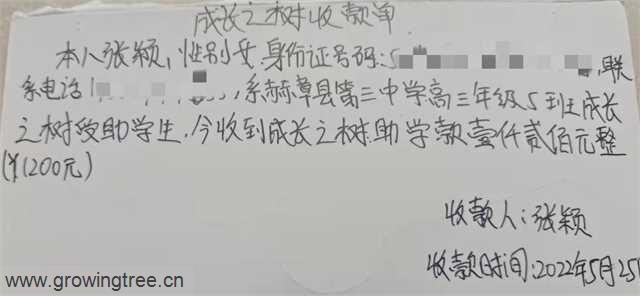 成长之树收款单
本人张颖,性别女,身份证号码:5,联
系电话1,系赫章县第三中学高三年级5班成长
之树受助学生.今收到成长之树助学款壹仟贰佰元整
(¥1200元)
收款人:张颖
收款时间:2022年5月25
www.growingtree.cn